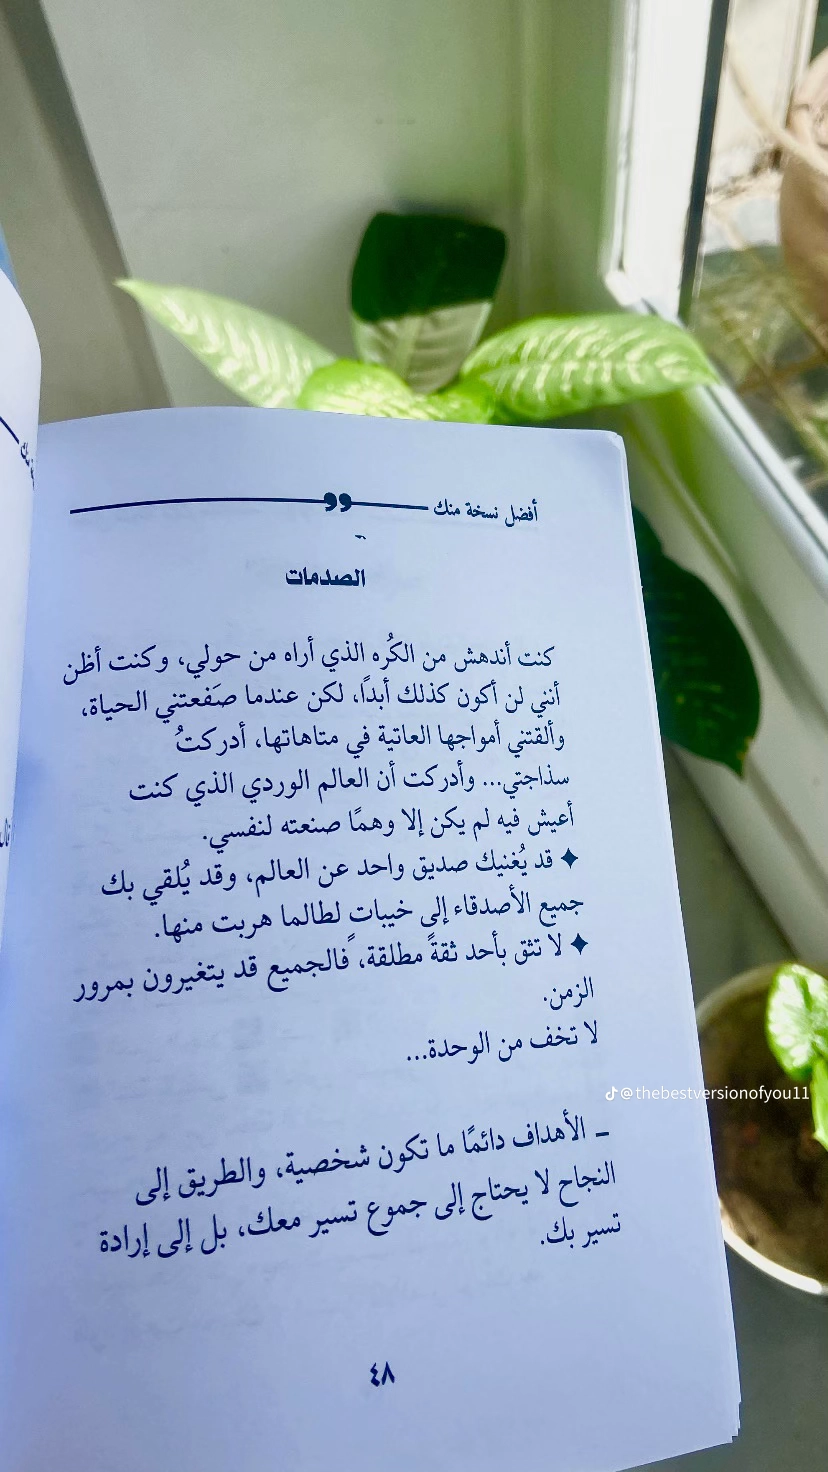 أفضل نسخة منك
الصدمات
كنت أندهش من الكُره الذي أراه من حولي، وكنت أظن
أنني لن أكون كذلك أبدًا، لكن عندما صَفعتني الحياة،
وألقتني أمواجها العاتية في متاهاتها، أدركتُ
سذاجتي... وأدركت أن العالم الوردي الذي كنت
أعيش فيه لم يكن إلا وهمًا صنعته لنفسي.
✦ قد يُغنيك صديق واحد عن العالم، وقد يُلقي بك
جميع الأصدقاء إلى خيباتٍ لطالما هربت منها.
✦ لا تثق بأحد ثقةً مطلقة، فالجميع قد يتغيرون بمرور
الزمن.
لا تخف من الوحدة...
– الأهداف دائمًا ما تكون شخصية، والطريق إلى
النجاح لا يحتاج إلى جموع تسير معك، بل إلى إرادة
تسير بك.
٤٨
@thebestversionofyou11